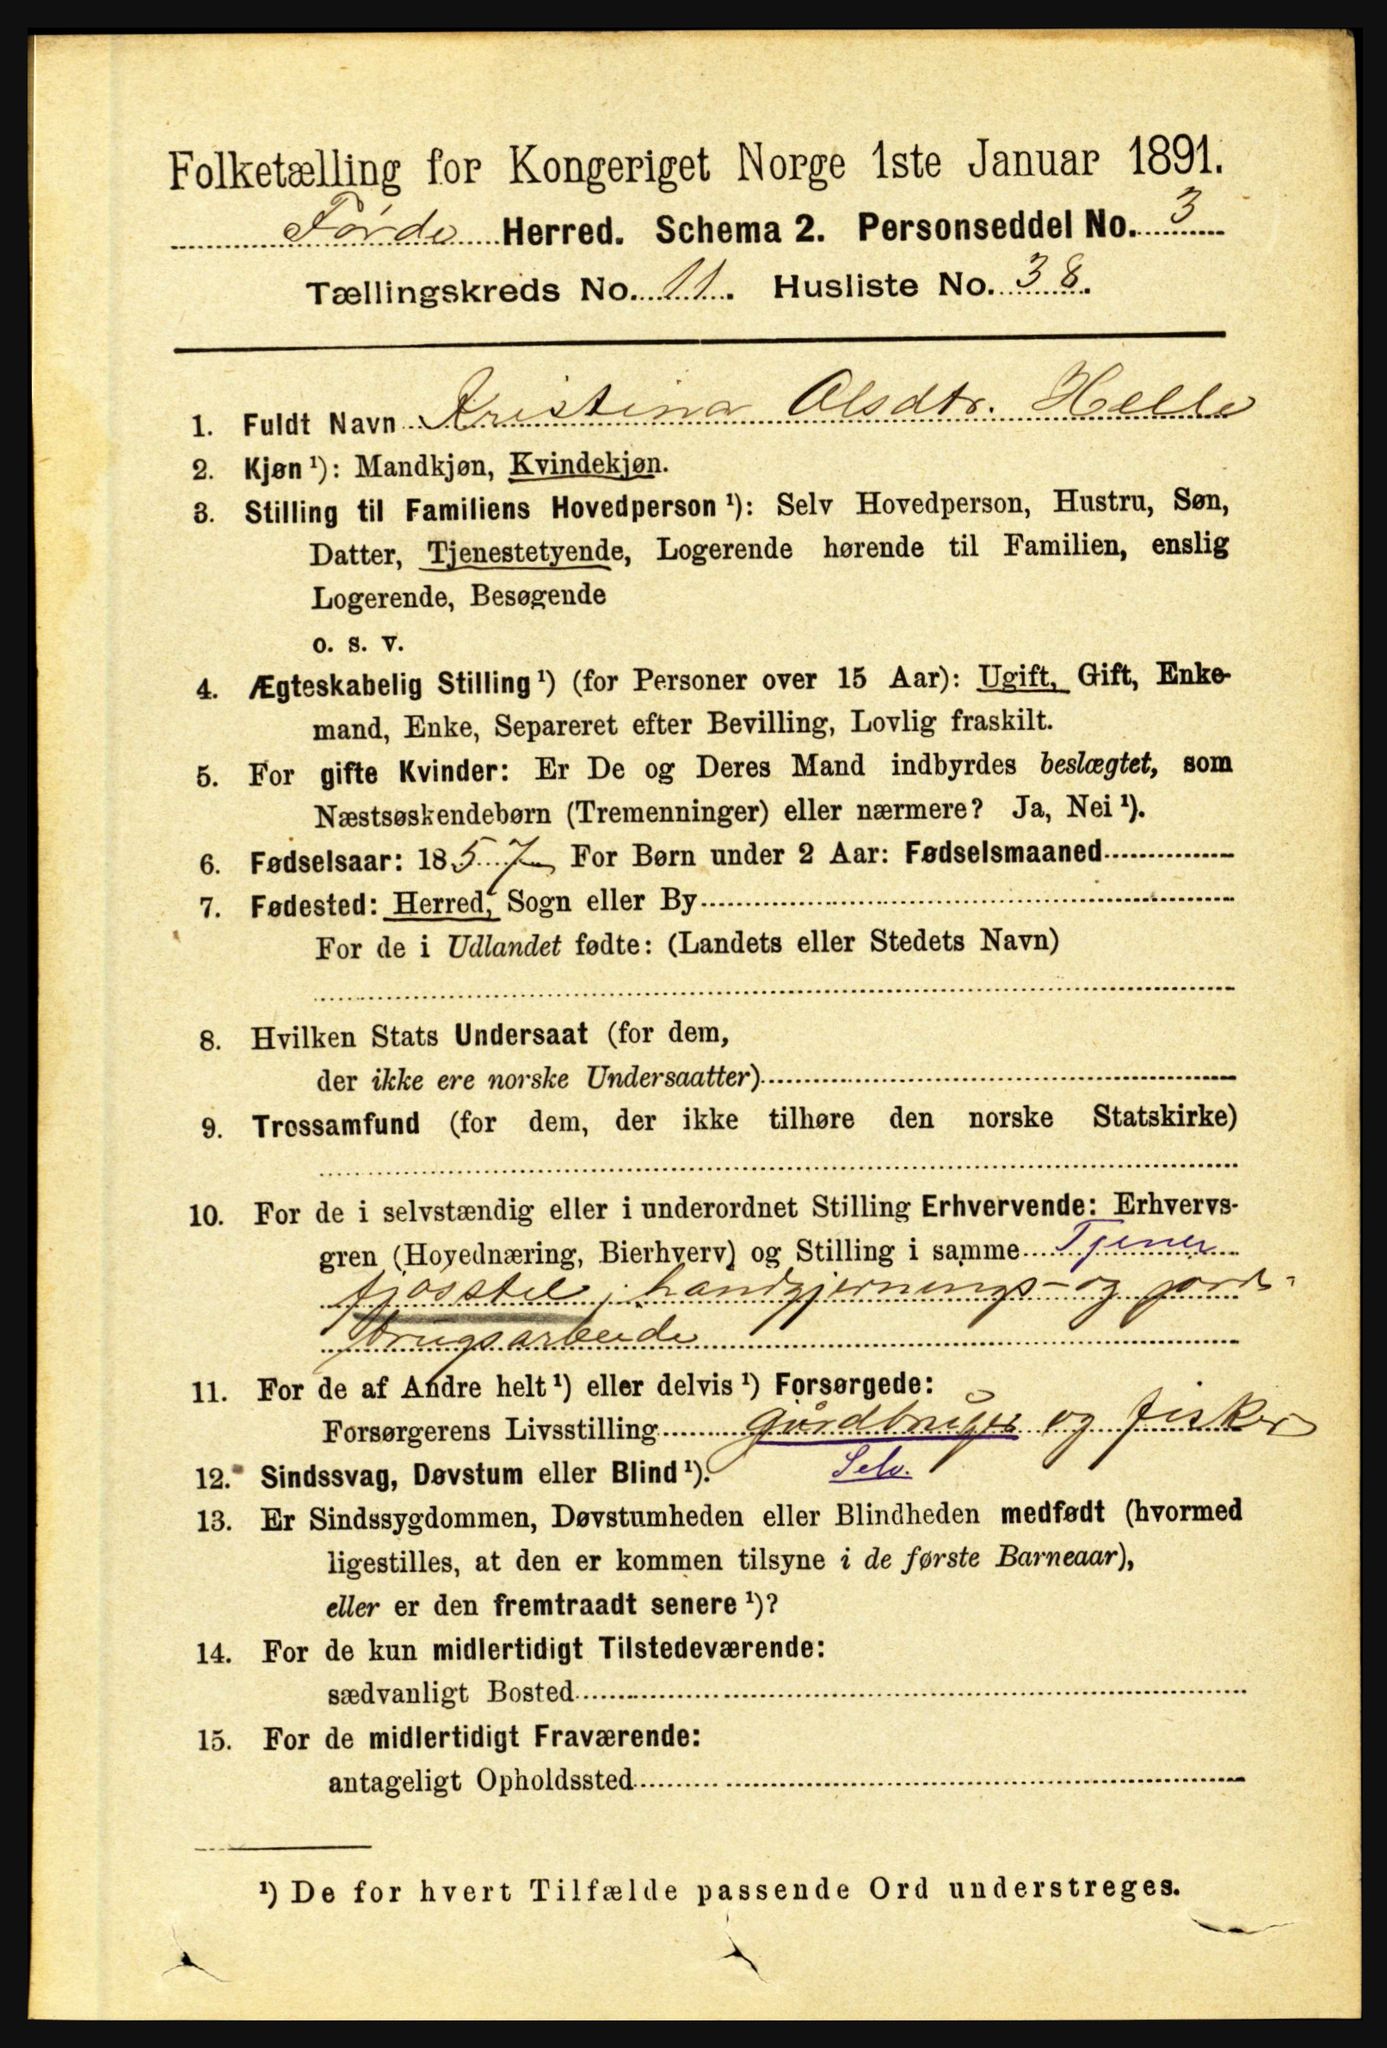 Folketælling for Kongeriget Norge 1ste Januar 1891.
Førde Herred. Schema 2. Personseddel No. 3
Tællingskreds No. 11. Husliste No. 38.
1. Fuldt Navn Kristina Olsdtr. Helle
2. Kjøn ¹): Mandkjøn, Kvindekjøn.
3. Stilling til Familiens Hovedperson ¹): Selv Hovedperson, Hustru, Søn,
Datter, Tjenestetyende, Logerende hørende til Familien, enslig
Logerende, Besøgende
o. s. v.
4. Ægteskabelig Stilling ¹) (for Personer over 15 Aar): Ugift, Gift, Enke-
mand, Enke, Separeret efter Bevilling, Lovlig fraskilt.
5. For gifte Kvinder: Er De og Deres Mand indbyrdes beslægtet, som
Næstsøskendebørn (Tremenninger) eller nærmere? Ja, Nei ¹).
6. Fødselsaar: 1857 For Børn under 2 Aar: Fødselsmaaned
7. Fødested: Herred, Sogn eller By
For de i Udlandet fødte: (Landets eller Stedets Navn)
8. Hvilken Stats Undersaat (for dem,
der ikke ere norske Undersaatter)
9. Trossamfund (for dem, der ikke tilhøre den norske Statskirke)
10. For de i selvstændig eller i underordnet Stilling Erhvervende: Erhvervs-
gren (Hovednæring, Bierhverv) og Stilling i samme Tjener
fjosstel, handgjernings- og jord-
brugsarbeide
11. For de af Andre helt ¹) eller delvis ¹) Forsørgede:
Forsørgerens Livsstilling gårdbruger og fisker
12. Sindssvag, Døvstum eller Blind ¹). Selv.
13. Er Sindssygdommen, Døvstumheden eller Blindheden medfødt (hvormed
ligestilles, at den er kommen tilsyne i de første Barneaar),
eller er den fremtraadt senere ¹)?
14. For de kun midlertidigt Tilstedeværende:
sædvanligt Bosted
15. For de midlertidigt Fraværende:
antageligt Opholdssted
¹) De for hvert Tilfælde passende Ord understreges.